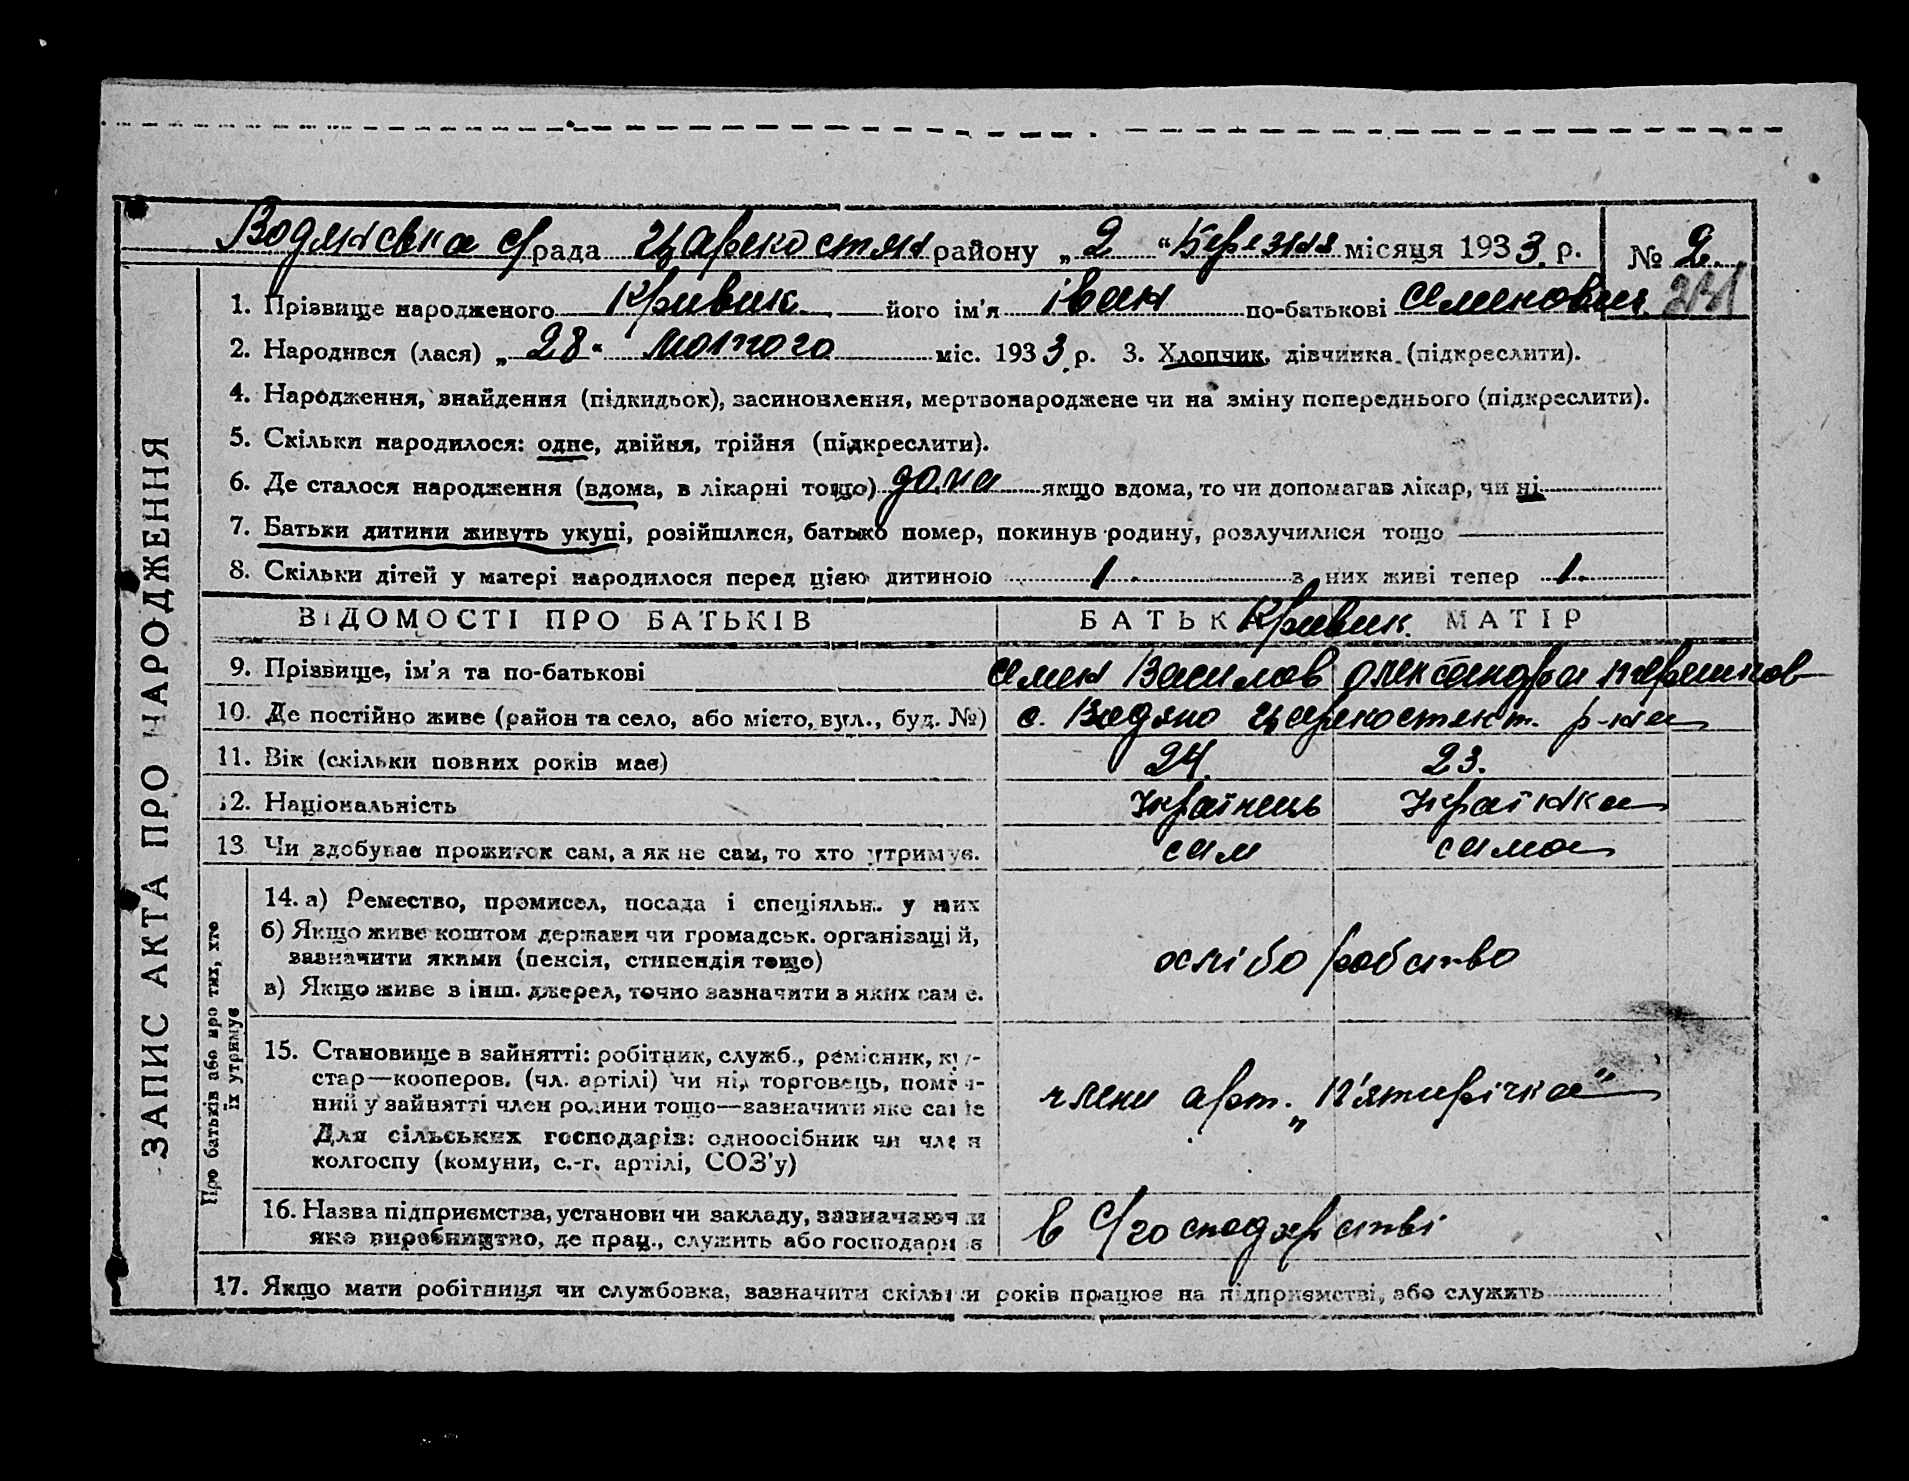 Водянська с/рада Царекостян району „2“ Березня місяця 1933 р. № 2.
1. Прізвище народженого Кривик його ім'я Іван по-батькові Семенович
2. Народився (лася) „28“ Лютого міс. 1933 р. 3. Хлопчик, дівчинка (підкреслити).
4. Народження, знайдення (підкидьок), засиновлення, мертвонароджене чи на зміну попереднього (підкреслити).
5. Скільки народилося: одне, двійня, трійня (підкреслити).
6. Де сталося народження (вдома, в лікарні тощо) дома якщо вдома, то чи допомагав лікар, чи ні
7. Батьки дитини живуть укупі, розійшлися, батько помер, покинув родину, розлучилися тощо
8. Скільки дітей у матері народилося перед цією дитиною 1. з них живі тепер 1.
ЗАПИС АКТА ПРО НАРОДЖЕННЯ
ВІДОМОСТІ ПРО БАТЬКІВ БАТЬК Кривик. МАТІР
9. Прізвище, ім'я та по-батькові Семен Василов Олександра
10. Де постійно живе (район та село, або місто, вул., буд. №) с. Водяно Царекостянт. р-на
11. Вік (скільки повних років має) 24. 23.
12. Національність Українець Українка
13. Чи здобуває прожиток сам, а як не сам, то хто утримує. сам сама
Про батьків або про тих, хто
їх утримує
14. а) Ремество, промисел, посада і спеціяльн. у них
б) Якщо живе коштом держави чи громадськ. організацій,
зазначити якими (пенсія, стипендія тощо)
в) Якщо живе з інш. джерел, точно зазначити з яких саме.
хлібо робство
15. Становище в зайнятті: робітник, служб., ремісник, кус-
стар—кооперов. (чл. артілі) чи ні, торговець, поміч-
ний у зайнятті член родини тощо—зазначити яке саме
Для сільських господарів: одноосібник чи член
колгоспу (комуни, с.-г. артілі, СОЗ'у)
члени арт. „П'ятирічка"
16. Назва підприємства, установи чи закладу, зазначаючи
яке виробництво, де прац., служить або господарює
в с/господарстві
17. Якщо мати робітниця чи службовка, зазначити скільки років працює на підприємстві, або служить